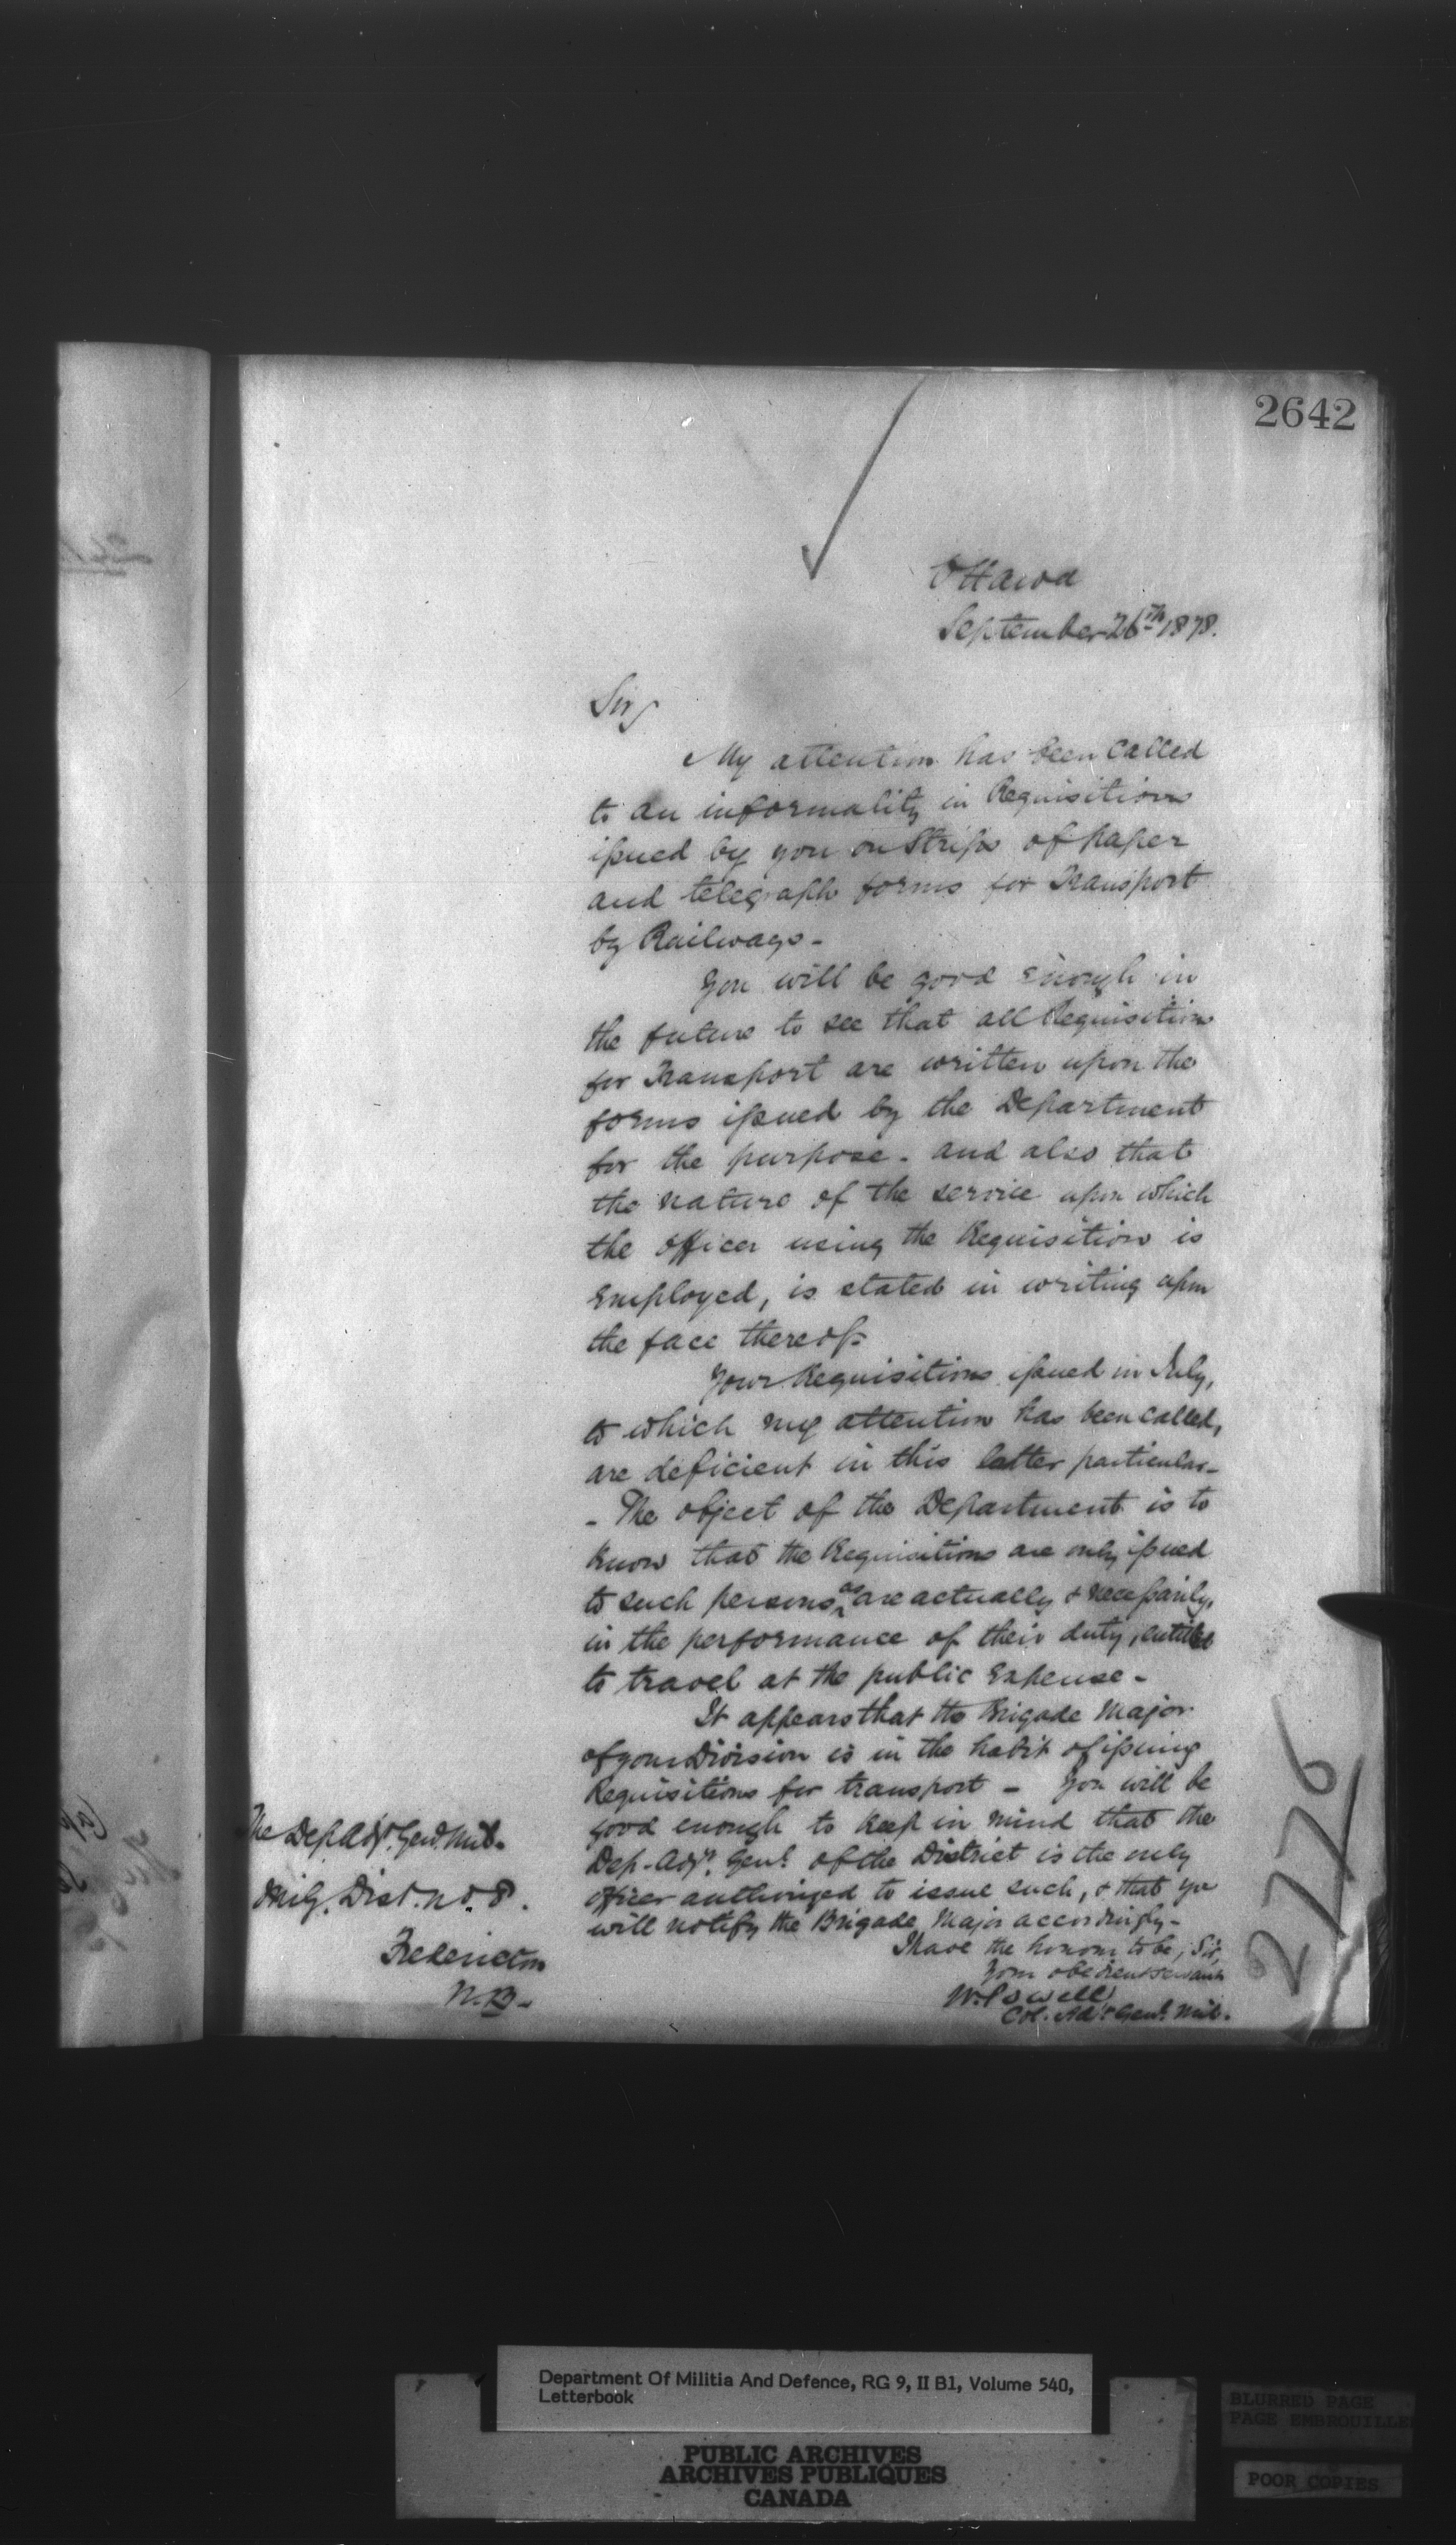 2642
Ottawa
September 26th 1878.
Sir,
My attention has been called
to an informality in Requisitions
issued by you on Strips of paper
and telegraph forms for Transport
by Railways -
You will be good enough in
the future to see that all Requisitions
for Transport are written upon the
forms issued by the Department
for the purpose - and also that
the nature of the service upon which
the officer using the Requisition is
Employed, is stated in writing upon
the face thereof -
Your Requisitions issued in July,
to which my attention has been called,
are deficient in this latter particular -
- The object of the Department is to
Know that the Requisitions are only issued
to such persons as are actually & necessarily,
in the performance of their duty, entitled
to travel at the public Expense -
It appears that the Brigade Major
of your Division is in the habit of issuing
Requisitions for transport - You will be
good enough to Keep in mind that the
Dep. Adjt. Genl. of the District is the only
officer authorized to issue such, & that you
will notify the Brigade Major accordingly -
I have the honour to be, Sir,
Your obedient servant
W. Powell
Col. Adjt Genl. Mil.
The Dep Adjt. Genl. Mil.
Mily. Dist. No. 8.
Fredericton
N.B.
2776
Department Of Militia And Defence, RG 9, II B1, Volume 540,
Letterbook
PUBLIC ARCHIVES
ARCHIVES PUBLIQUES
CANADA
BLURRED PAGE
PAGE EMBROUILLEE
POOR COPIES